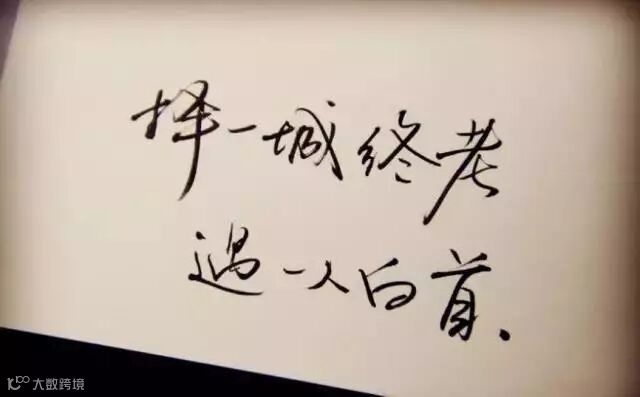 择一城终老
遇一人白首.
大数跨境